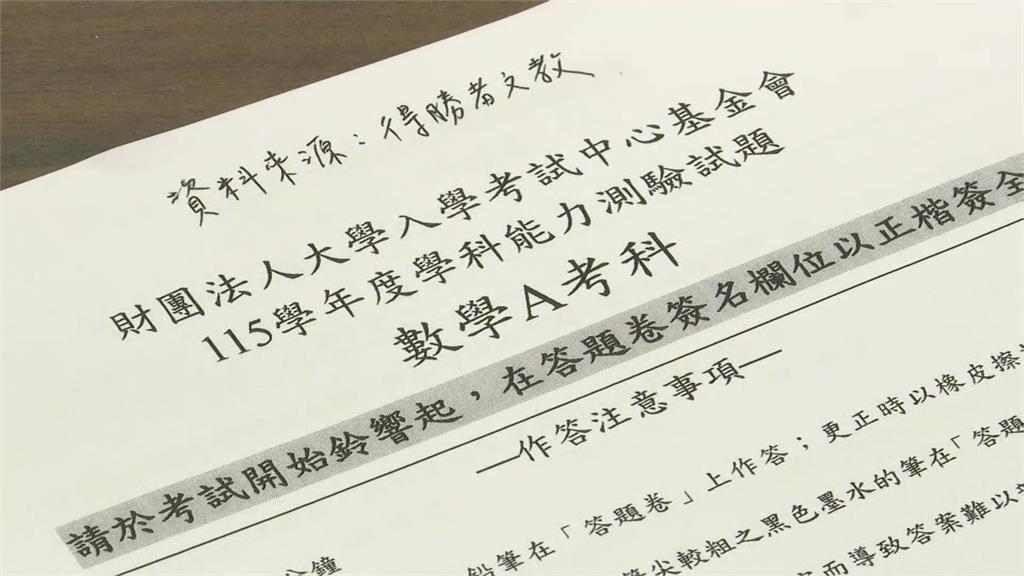 資料來源：得勝者文教
財團法人大學入學考試中心基金會
115學年度學科能力測驗試題
數學A考科
請於考試開始鈴響起，在答題卷簽名欄位以正楷簽全
—作答注意事項—
分鐘
鉛筆在「答題卷」上作答；更正時以橡皮擦
筆尖較粗之黑色墨水的筆在「答題
而導致答案難以